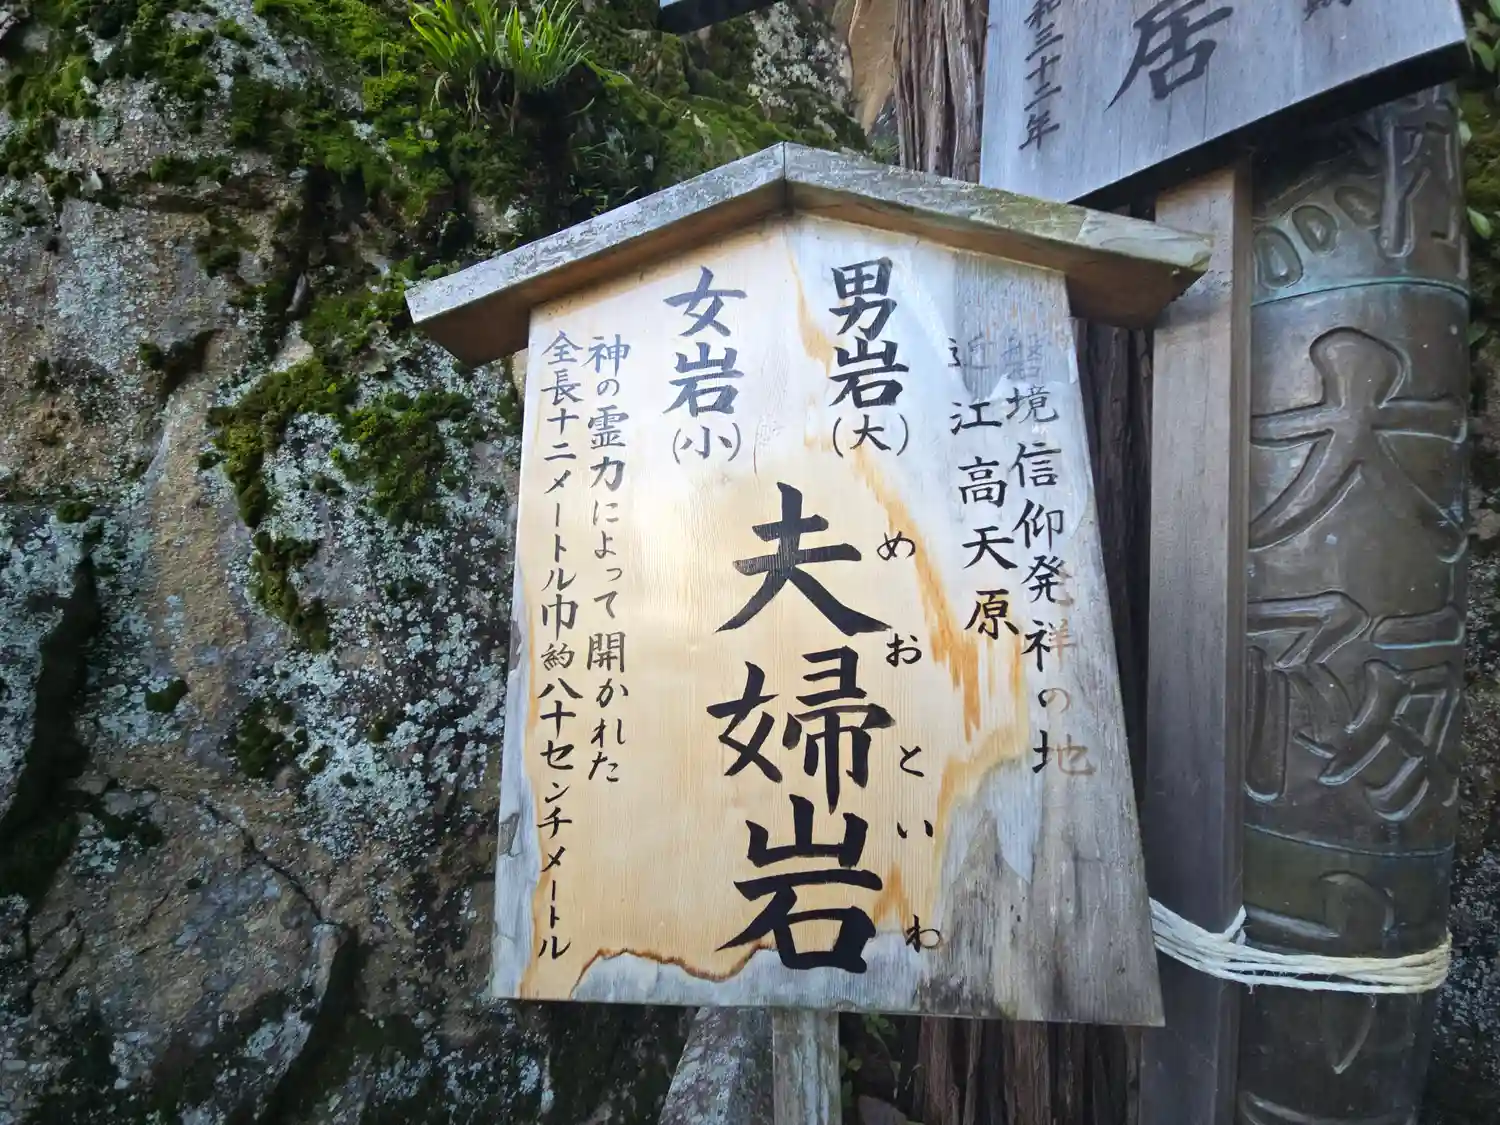 磐境信仰発祥の地
近江高天原
男岩(大)
女岩(小)
めおといわ
夫婦岩
神の霊力によって開かれた
全長十二メートル巾約八十センチメートル
居
和三十二年
大阪